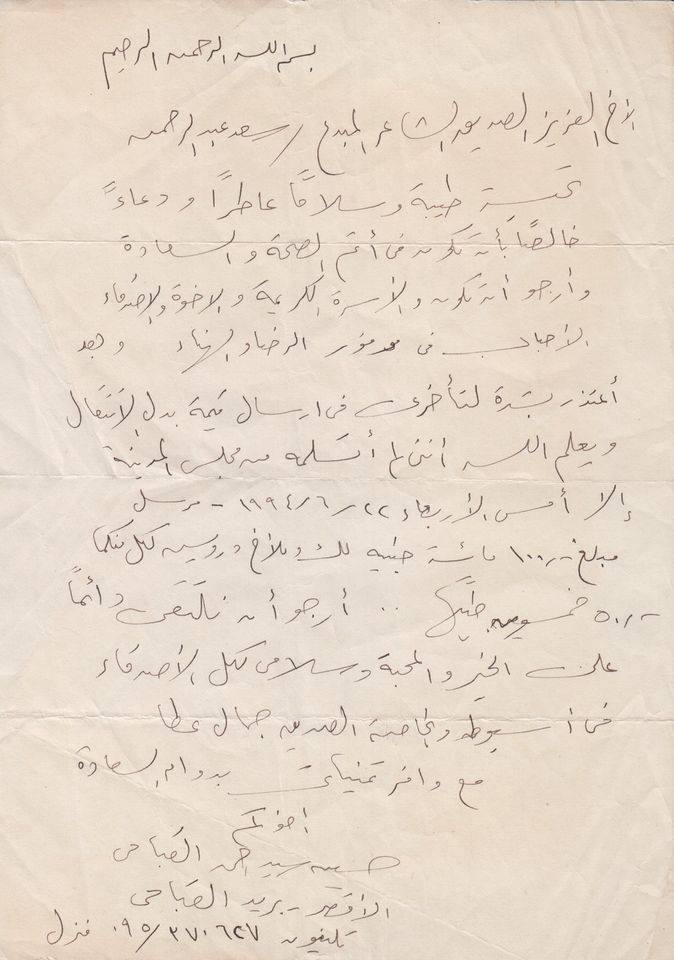 بسم الله الرحمن الرحيم
الأخ العزيز الصديق الشاعر المبدع / سعد عبد الرحمن
تحية طيبة وسلامًا عاطرًا ودعاءً
خالصًا بأن تكون فى أتم الصحة والسعادة
وأرجو أن تكون والأسرة الكريمة والإخوة والأصدقاء
الأحباب فى موفور الرضا والهناء وبعد
أعتذر بشدة لتأخرى فى ارسال قيمة بدل الانتقال
ويعلم الله أننى لم أتسلمه من مجلس المدينة
إلا أمس الأربعاء ٢٢/٦/١٩٩٤ - مرسل
مبلغ ١٠٠٫- مائة جنيه لك وللأخ درويش لكل منكما
٥٠٫- خمسون جنيهًا .. أرجو أن نلتقى دائمًا
على الخير والمحبة وسلامى لكل الأصدقاء
فى أسيوط وبخاصة الصديق جمال عطا
مع وافر تمنياتى بدوام السعادة
أخوكم
حسين سيد أحمد القباحى
الأقصر - بريد القباحى
تليفون ٠٩٥/٣٧٠٦٢٧ منزل